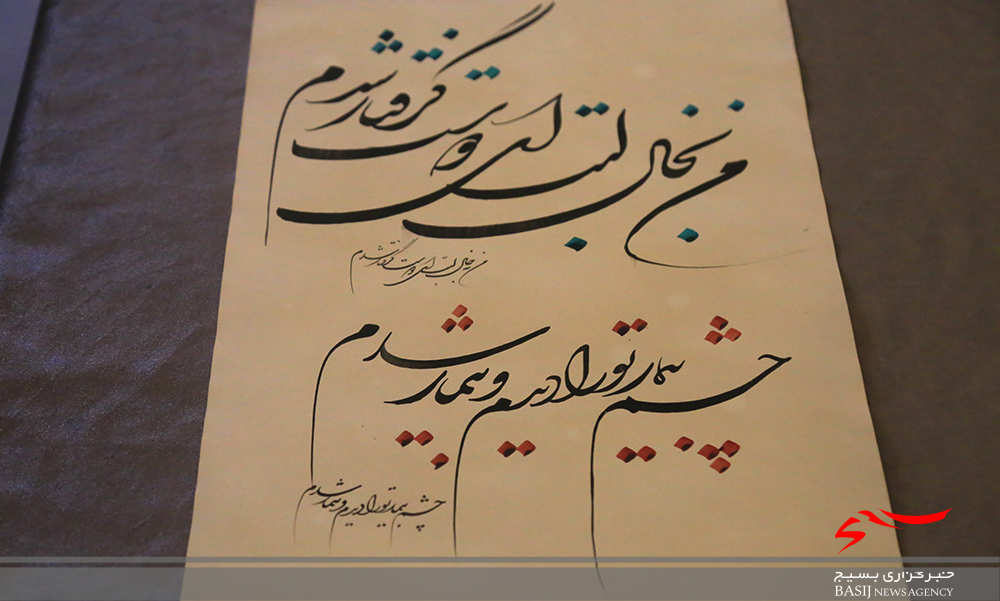 من بخال لبت ای دوست گرفتار شدم
من بخال لبت ای دوست گرفتار شدم
چشم بیمار تو را دیدم و بیمار شدم
چشم بیمار تو را دیدم و بیمار شدم
خبرگزاری بسیج
BASIJ NEWS AGENCY